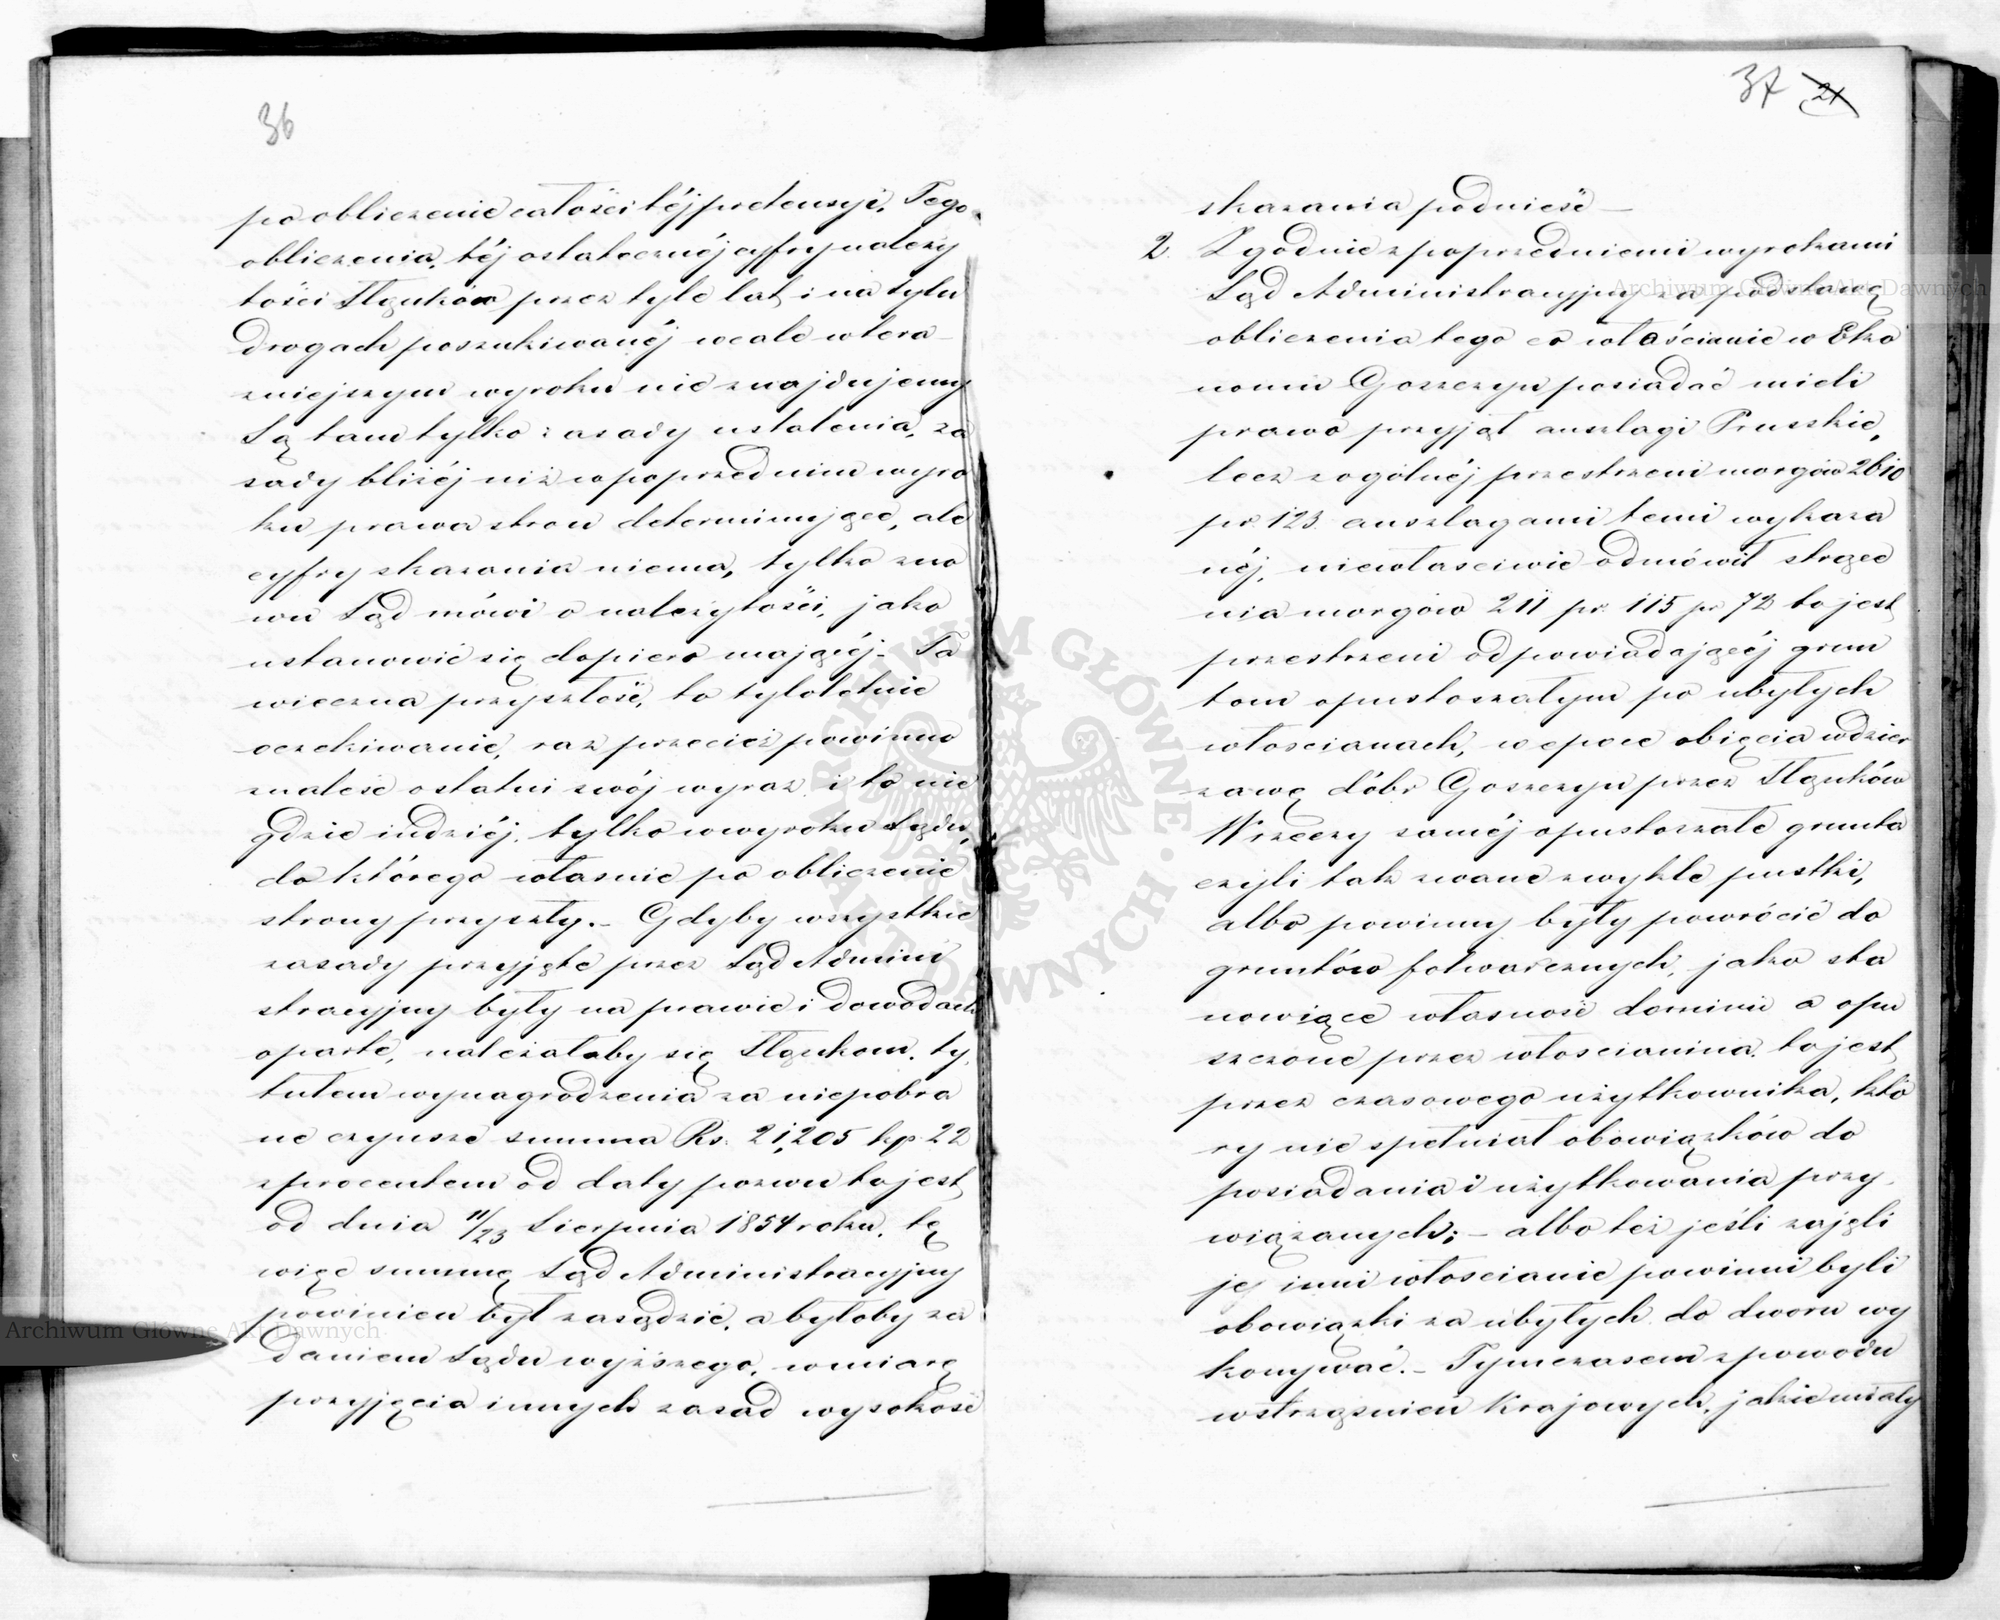 36
po obliczenie całości téj pretensyi. Tego
obliczenia, téj ostatecznéj cyfry należy
tości Ilguków przez tyle lat i na tylu
drogach poszukiwanéj wcale w tera
zniejszym wyroku nie znajdujemy
Są tam tylko zasady ustalenia, za
sady bliżéj niż w poprzednim wyro
ku prawa stron determinujące, ale
cyfry skazania niema, tylko zno
wu Sąd mówi o należytości, jako
ustanowić się dopiero mającéj. Ta
wieczna przyszłość, to tyloletnie
oczekiwanie, raz przecież powinno
znaleść ostatni swój wyraz i to nie
gdzie indziéj, tylko w wyroku Sądu,
do którego własnie po obliczenie
strony przyszły. – Gdyby wszystkie
zasady przyjęte przez Sąd Admini
stracyjny były na prawie i dowodach
oparte, należałaby się Ilgukom, ty
tułem wynagrodzenia za niepobra
ne czynsze summa Rs. 21,205 kp 22
z procentem od daty pozwu to jest
od dnia 11/23 Sierpnia 1854 roku, tę
więc summę Sąd Administracyjny
powinien był zasądzić, a byłoby za
daniem Sądu wyższego, w miarę
przyjęcia innych zasad wysokość
37 21
skazania podnieść –
2. Zgodnie z poprzedniemi wyrokami
Sąd Administracyjny za podstawę
obliczenia tego co włościanie w Eko
nomii Goszczyn posiadać mieli
prawo przyjął anszlagi Prusskie,
lecz z ogólnéj przestrzeni morgów 2610
pr. 123 anszlagami temi wykaza
néj, niewłasciwie odmówił strące
nia morgów 211 pr. 115 pr 72 to jest
przestrzeni odpowiadającéj grun
tom opustoszałym po ubyłych
włoscianach, w epoce objęcia w dzier
zawę dóbr Goszczyn przez Ilguków
W rzeczy saméj opustoszałe grunta
czyli tak zwane zwykle pustki,
albo powinny były powrócić do
gruntów folwarcznych, jako sta
nowiące własność dominii a opu
szczone przez włoscianina, to jest
przez czasowego użytkownika, któ
ry nie spełniał obowiązków do
posiadania i użytkowania przy
wiązanych; – albo też jeśli zajęli
je inni włoscianie powinni byli
obowiązki za ubyłych do dworu wy
konywać. – Tymczasem z powodu
wstrząśnień Krajowych, jakie miały
Archiwum Główne Akt Dawnych
Archiwum Główne Akt Dawnych
ARCHIWUM GŁÓWNE · AKT DAWNYCH ·